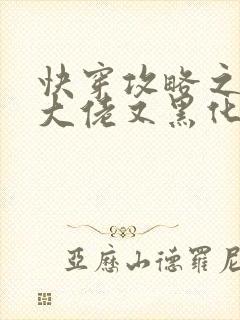 快穿攻略之
大佬又黑化
亚历山德罗尼